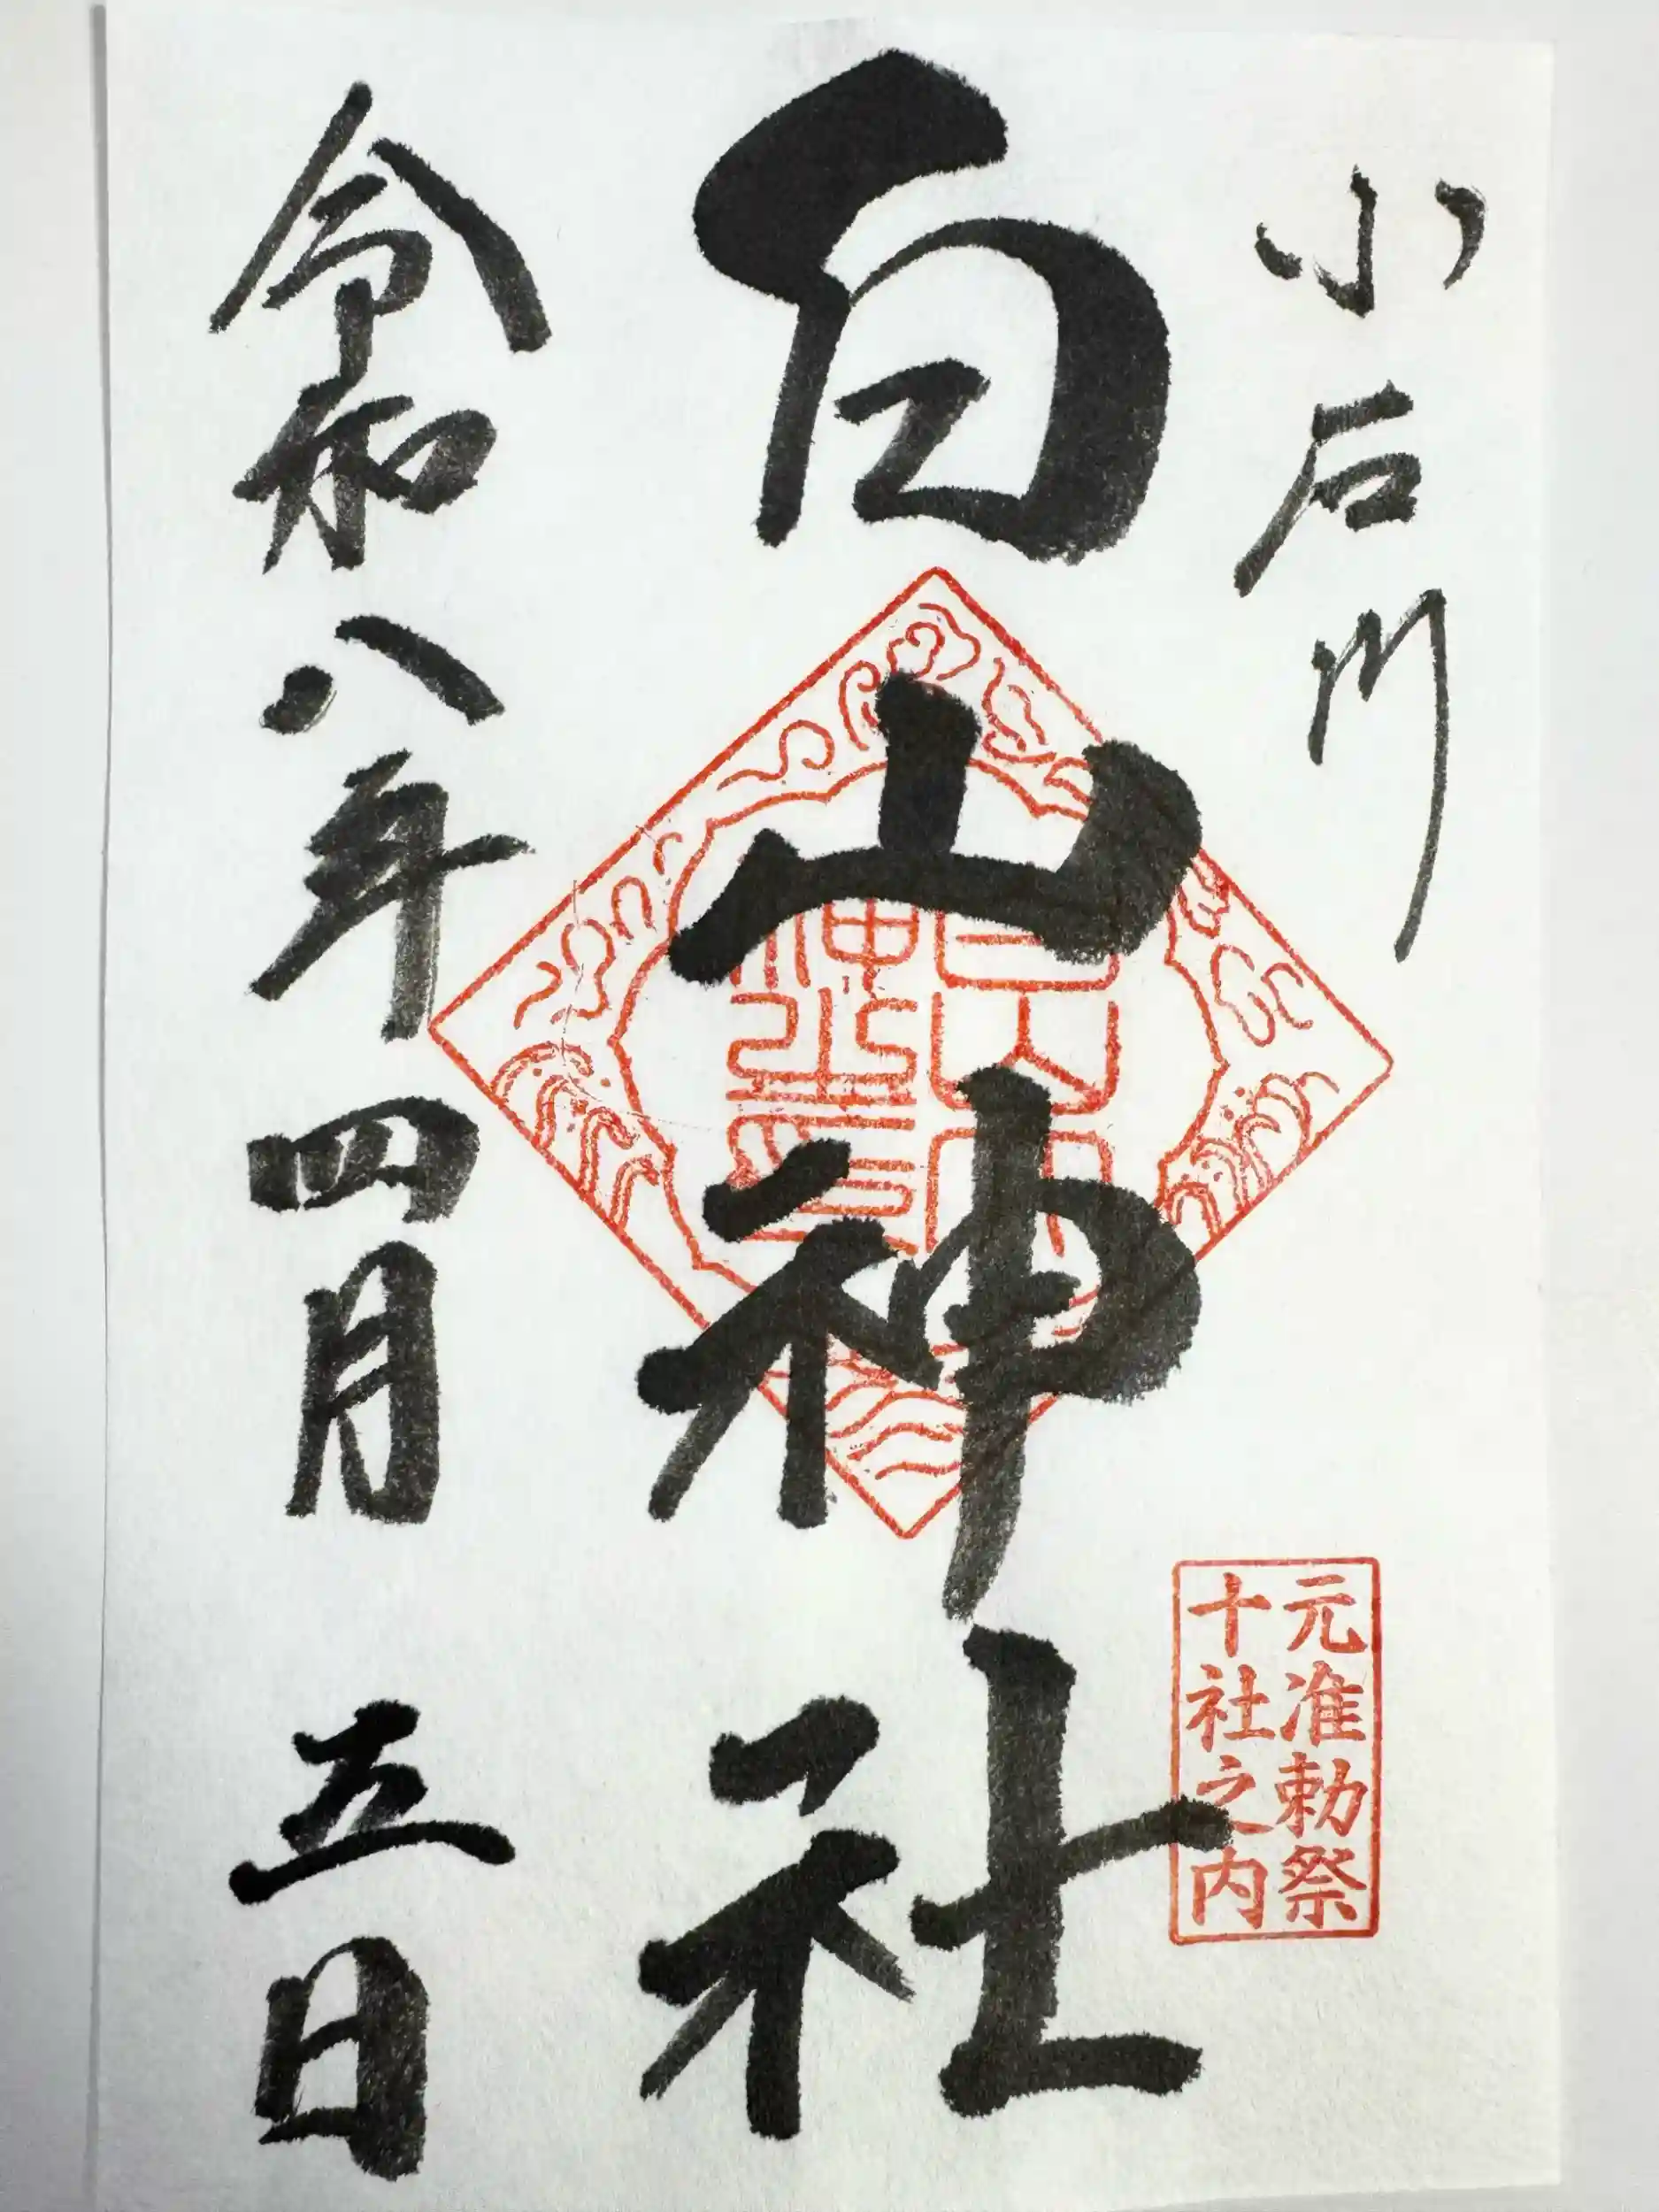 小石川
白山神社
令和八年四月五日
元准勅祭
十社之内